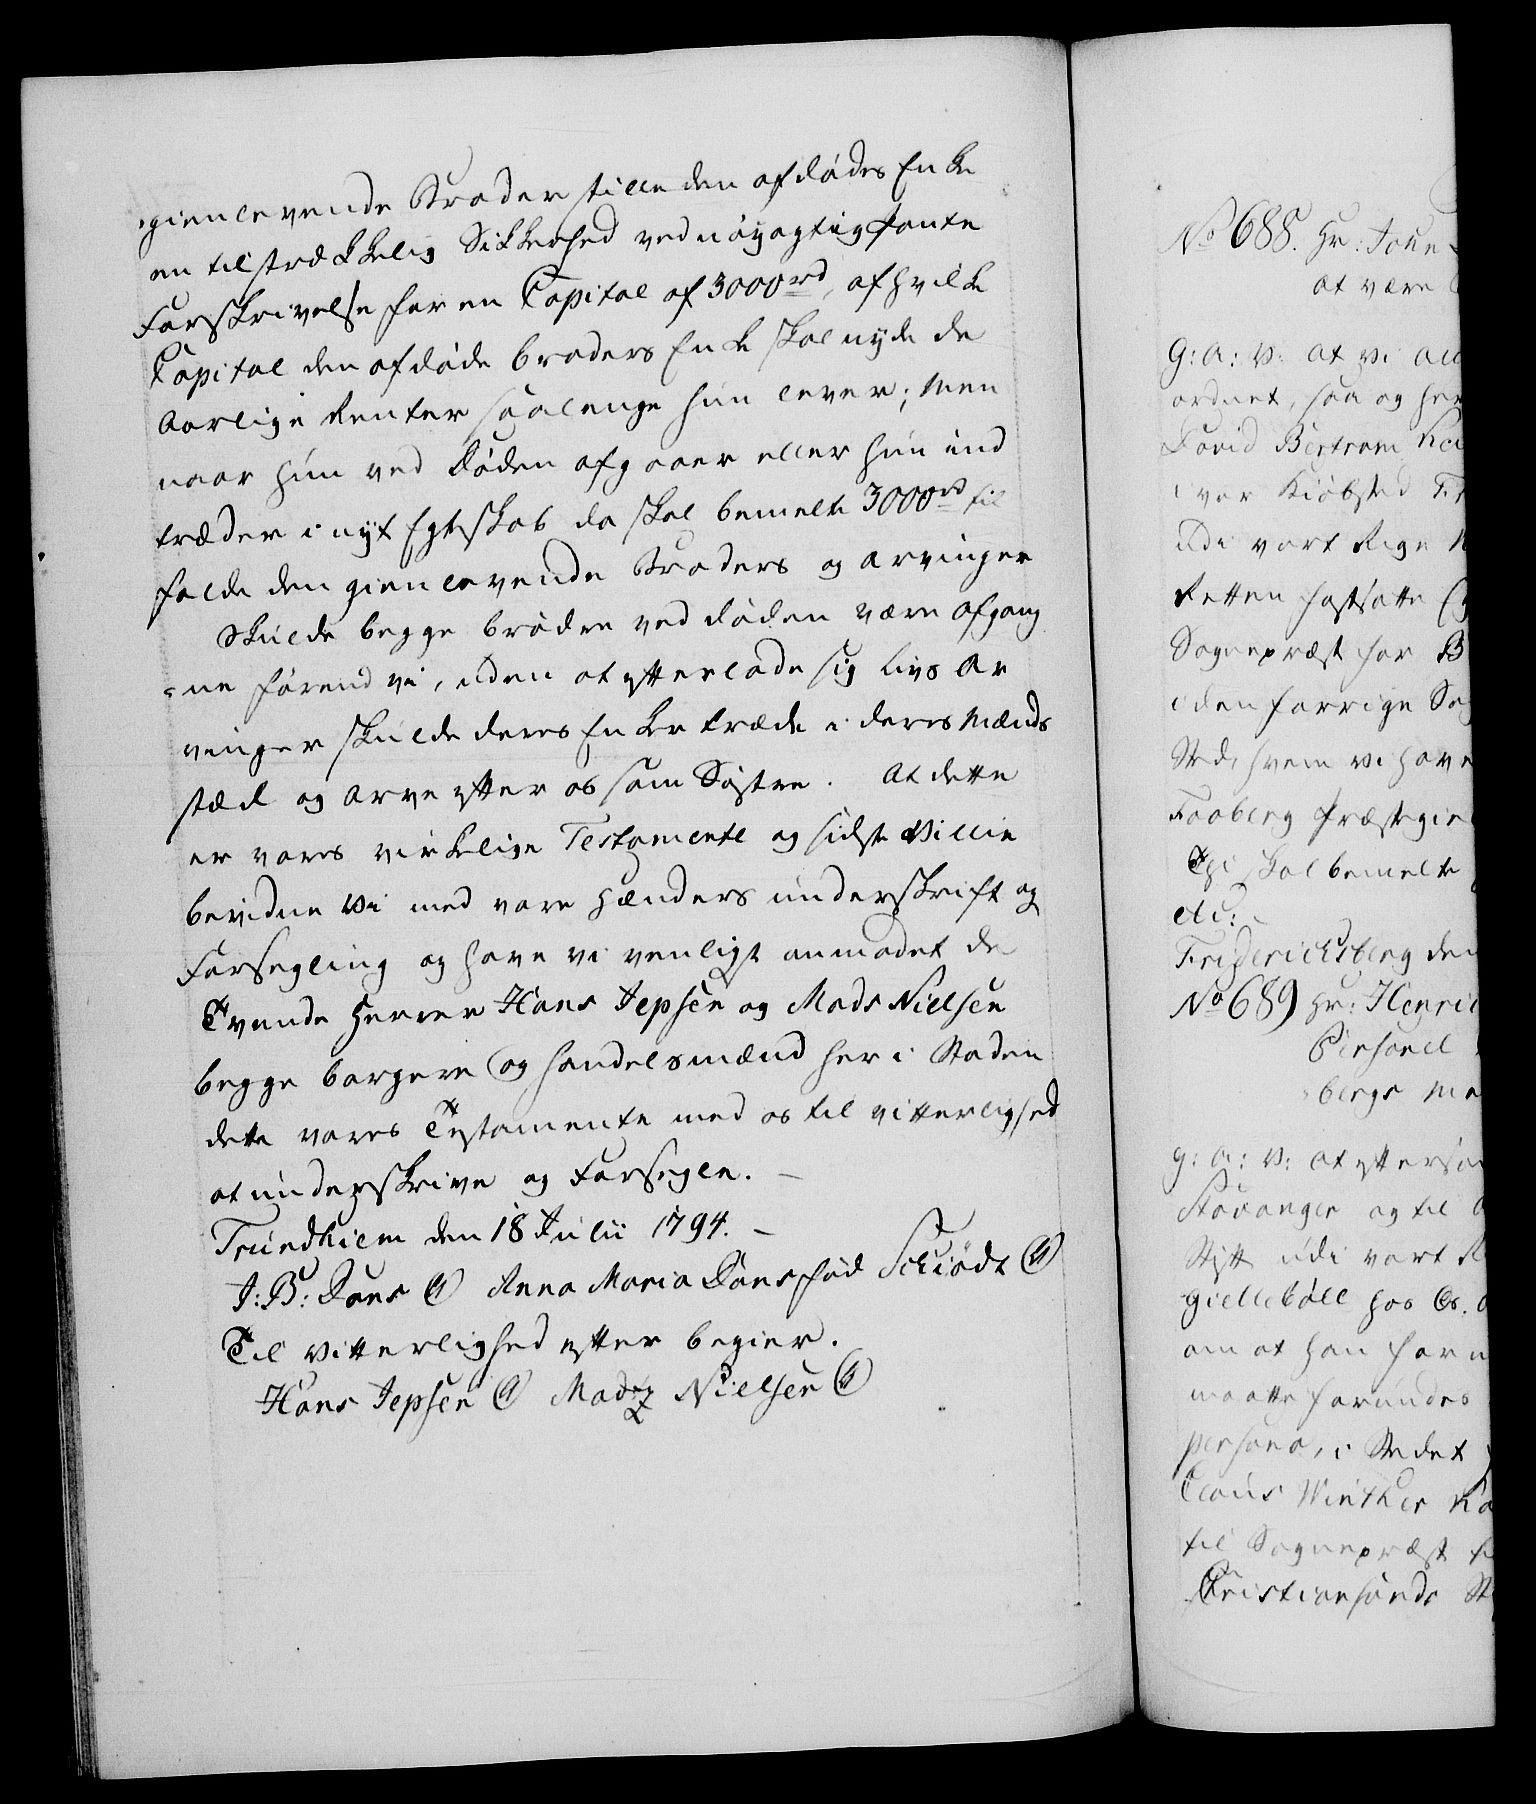 gienlevende Broder stille den afdødes Enke
en tilstrækkelig Sikkerhed ved nøyagtig Pante
Forskrivelse for en Capital af 3000 rd, af hvilke
Capital den afdøde broders Enke skal nyde de
Aarlige Renter saalenge hun lever; Men
naar hun ved Døden afgaaer eller hun ind
træder i nyt Egteskab da skal bemelte 3000 rd til
falde den gienlevende Broders og Arvinger
Skulde begge brødre ved døden være afgang
=ne førend vi, uden at efterlade sig Livs Ar
vinger skulde deres Enker træde i deres Mænds
stæd og Arve efter os som Søstre. At dette
er vores virkelige Testamente og sidste Villie
bevidne Vi med vore Hænders underskrift og
Forsegling og have vi venligt anmodet de
Tvende Herrer Hans Jepsen og Mads Nielsen
begge borgere og Handelsmænd her i Staden
dette vores Testamente med os til vitterlighed
at underskrive og Forsegle. –
Trundhiem den 18 Julii 1794. –
J: B: Dons Anna Maria Dons fød Schiödt
Til Vitterlighed efter begier.
Hans Jepsen Mads Nielsen
No 688. Hr: John
at være
G: A: V: at vi all
ordnet, saa og her
David Bertram
i vor Kiøbsted
udi vort Rige
Retten fastsatte
Sognepræst for
i den forrige
Sted, hvem Vi have
Faaberg Præstegie
Thi skal bemelte
etc:
Friderichsberg den
No 689 Hr: Henric
Personel
bergs Me
G: A: V: at efter
Stavanger og til
Stift udi vort
Giellebøll hos Os.
om at han for
maatte forundes
persona, i Stedet
Claus Winther
til Sognepræst
Christiansands St